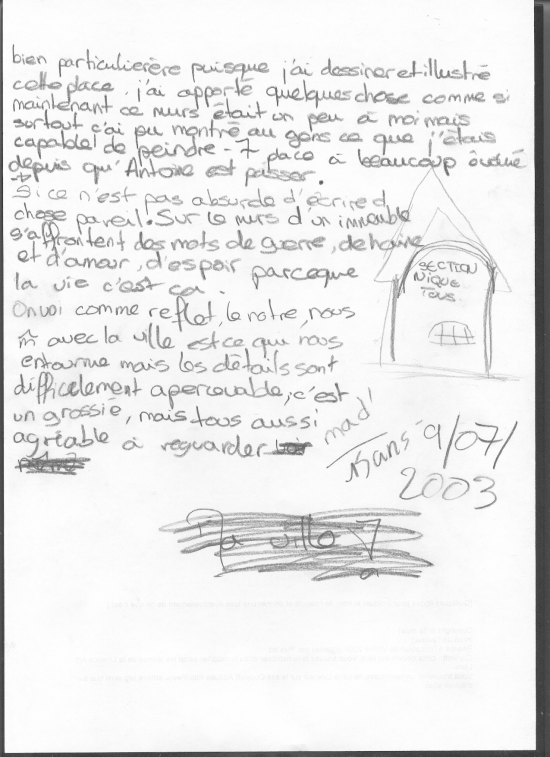 bien particulierère puisque j'ai dessiner et illustré
cette place. j'ai apporté quelques chose comme si
maintenant ce murs était un peu à moi mais
surtout c'ai pu montré au gens ce que j'étais
capable de peindre - 7 place à beaucoup évolué
depuis qu'Antoine est passer.
Si ce n'est pas absurde d'écrire d
chose pareil. Sur le murs d'un immeuble
s'affrontent des mots de guerre, de haine
et d'amour, d'espoir parceque
la vie c'est ça.
On voi comme reflet, le notre, nous
m̂ avec la ville est ce qui nous
entourne mais les détails sont
difficelement apercevable, c'est
un grossié, mais tous aussi
agréable à reguarder
SECTION
NIQUE
TOUS
mad'
15 ans - 9/07/
2003
la ville